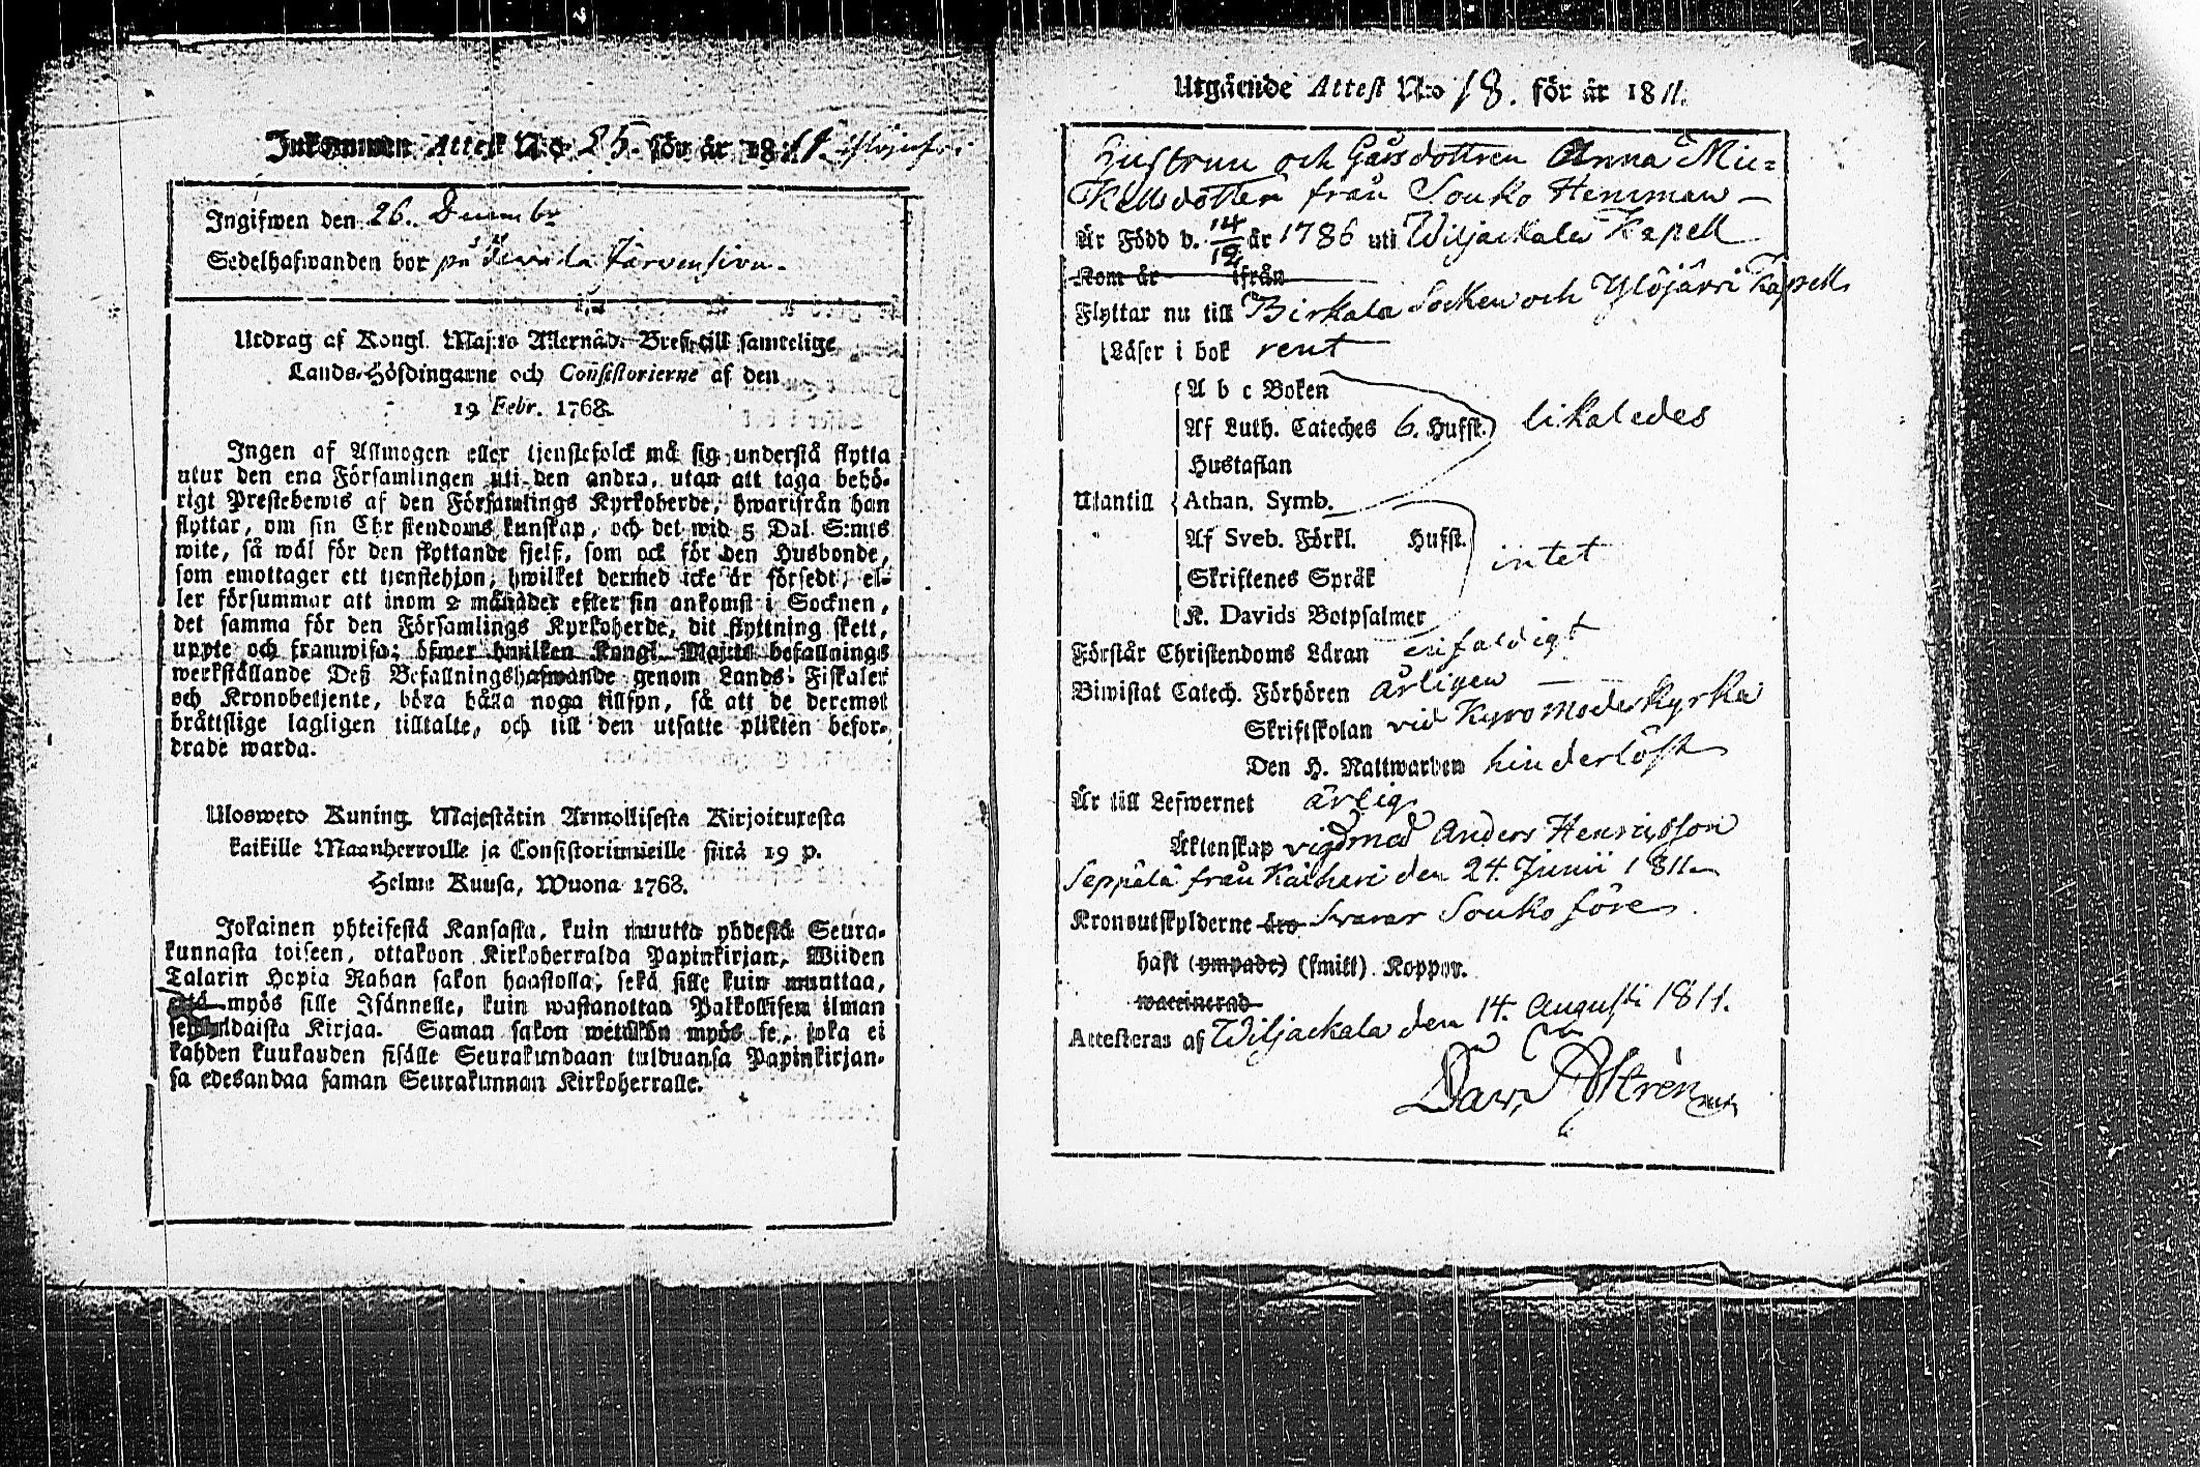 Inkommen Attest N:o 25. för år 1811.
Ingifwen den 26. Decembr
Sedelhafwanden bor på
Utdrag af Kongl. Maj:ts Allernåd. Bref till samtelige
Lands-Höfdingarne och Consistorierne af den
19 Febr. 1768.
Ingen af Allmogen eller tjenstefolck må sig understå flytta
utur den ena Församlingen uti den andra, utan att taga behö-
rigt Prestebewis af den Församlings Kyrkoherde, hwarifrån han
flyttar, om sin Christendoms kunskap, och det wid 5 Dal. S:mts
wite, så wäl för den flyttande sjelf, som ock för den Husbonde,
som emottager ett tjenstehjon, hwilket dermed icke är försedt, el-
ler försummar att inom 2 månader efter sin ankomst i Socknen,
det samma för den Församlings Kyrkoherde, dit flyttning skett,
uppte och framwisa; öfwer hwilken Kongl. Maj:ts befallnings
werkställande Deß Befallningshafwande genom Lands-Fiskaler
och Kronobetjente, böra hålla noga tillsyn, så att de deremot
bråttslige lagligen tilltalte, och till den utsatte plikten befor-
drade warda.
Ulosweto Kuning. Majestätin Armollisesta Kirjoituxesta
kaikille Maanherroille ja Consistoriumeille siitä 19 p.
Helme Kuusa, Wuona 1768.
Jokainen yhteisestä Kansasta, kuin muutta yhdestä Seura-
kunnasta toiseen, ottakoon Kirkoherralda Papinkirjan, Wiiden
Talarin Hopia Rahan sakon haastolla, sekä sille kuin muuttaa,
että myös sille Isännelle, kuin wastanottaa Palkollisen ilman
senkaldaista Kirjaa. Saman sakon wetäkön myös se, joka ei
kahden kuukauden sisälle Seurakundaan tulduansa Papinkirjan-
sa edesandaa saman Seurakunnan Kirkoherralle.
Utgående Attest N:o 18. för år 1811.
Hustrun och Gårdsdottren Anna Mic-
kelsdotter från Souko Hemman
Är Född d. 14/12 år 1786 uti Wiljackala Kapell
Kom år ifrån
Flyttar nu till Birkala Socken och Ylöjärvi Kapell
Läser i bok rent
A b c Boken
Af Luth. Cateches 6. Hufst. likaledes
Hustaflan
Utantill Athan. Symb.
Af Sveb. Förkl. Hufst. intet
Skriftenes Språk
K. Davids Botpsalmer
Förstår Christendoms Läran enfaldigt
Biwistat Catech. Förhören årligen
Skriftskolan vid Kyro Moderkyrka
Den H. Nattwarden hinderlöst
Är till Lefwernet ärlig
Äktenskap vigd med Anders Henricsson
Seppälä från Kaihari den 24. Junii 1811
Kronoutskylderne äro svarar Souko före
haft (ympade) (smitt) Koppor.
waccinerad
Attesteras af Wiljackala den 14. Augusti 1811.
Dav